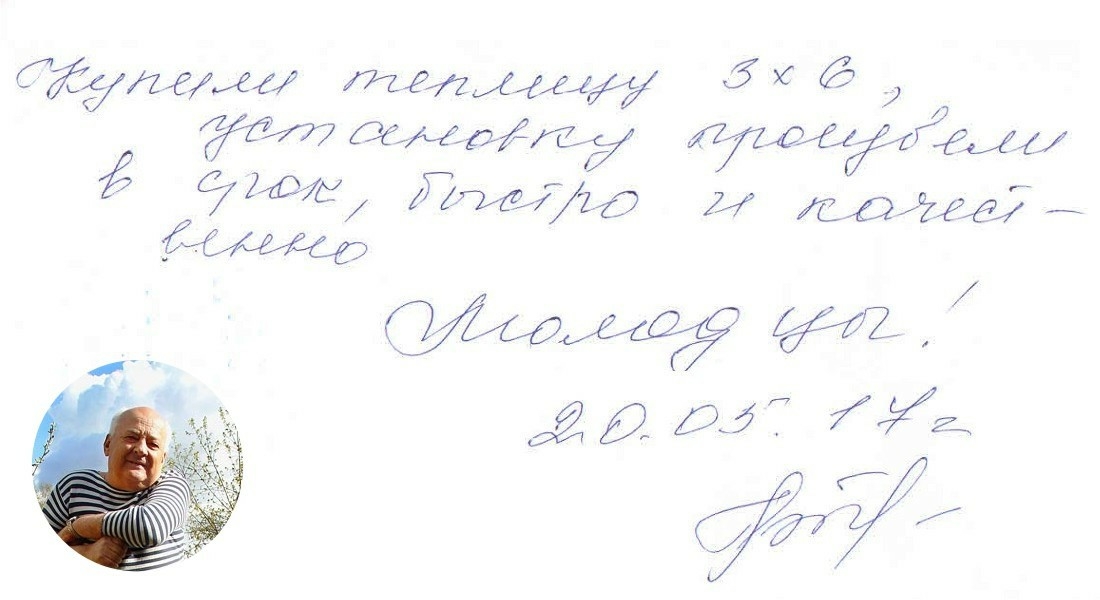 Купили теплицу 3х6,
установку произвели
в срок, быстро и качест-
венно
Молодцы!
20.05.17г